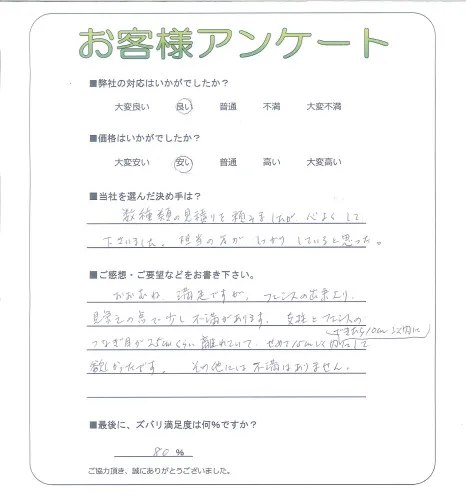 お客様アンケート
■弊社の対応はいかがでしたか？
大変良い 良い 普通 不満 大変不満
■価格はいかがでしたか？
大変安い 安い 普通 高い 大変高い
■当社を選んだ決め手は？
数種類の見積りを頼みましたが、心よくして
下さいました。担当の方がしっかりしていると思った。
■ご感想・ご要望などをお書き下さい。
おおむね、満足ですが、フェンスの出来上り、
見栄えの点で少し不満があります。支柱とフェンスの
できたら10cm以内に
つなぎ目が25cmくらい離れていて、せめて15cm以内にして
欲しかったです。その他には不満はありません。
■最後に、ズバリ満足度は何％ですか？
80 ％
ご協力頂き、誠にありがとうございました。